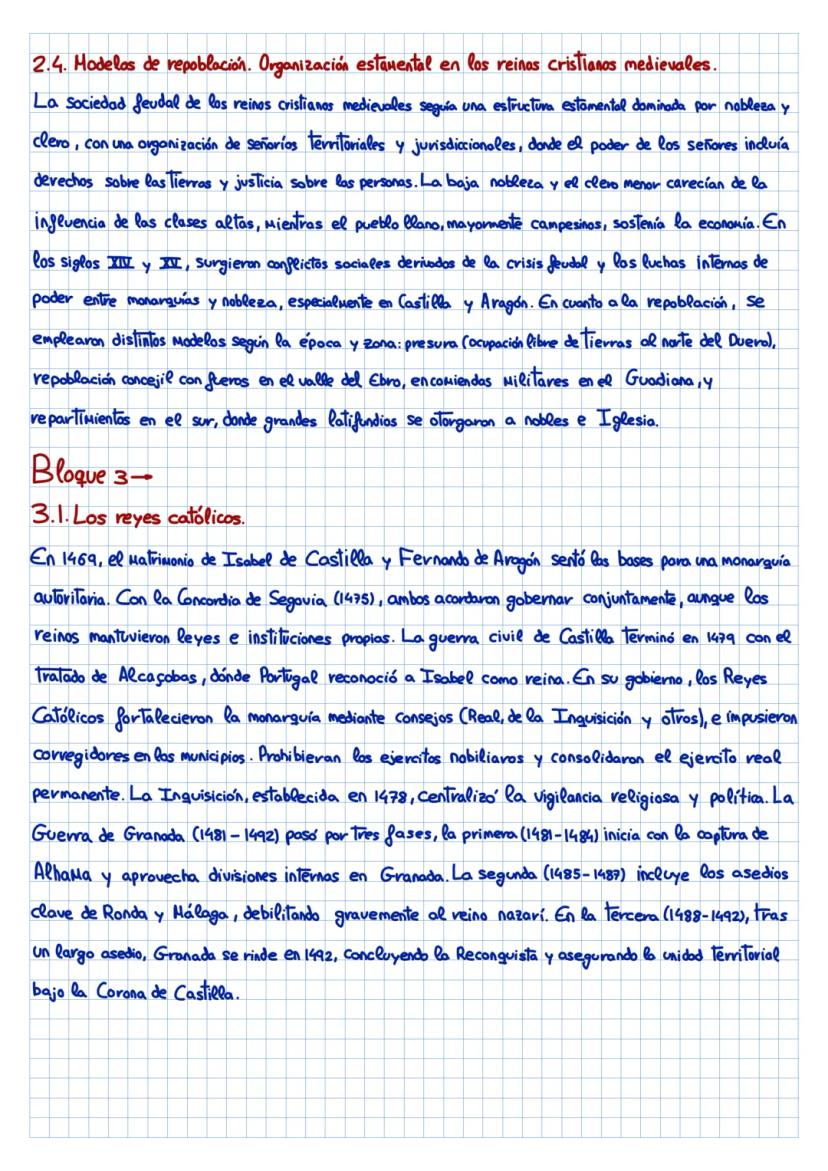 2.4. Modelos de repoblación. Organización estamental en los reinos cristianos medievales.
La sociedad feudal de los reinos cristianos medievales seguía una estructura estamental dominada por nobleza y
clero, con una organización de señoríos territoriales y jurisdiccionales, donde el poder de los señores incluía
derechos sobre las tierras y justicia sobre las personas. La baja nobleza y el clero menor carecían de la
influencia de las clases altas, mientras el pueblo llano, mayormente campesinos, sostenía la economía. En
los siglos XIV y XV, surgieron conflictos sociales derivados de la crisis feudal y las luchas internas de
poder entre monarquías y nobleza, especialmente en Castilla y Aragón. En cuanto a la repoblación, se
emplearon distintos modelos según la época y zona: presura (ocupación libre de tierras al norte del Duero),
repoblación concejil con fueros en el valle del Ebro, encomiendas militares en el Guadiana, y
repartimientos en el sur, donde grandes latifundios se otorgaron a nobles e Iglesia.
Bloque 3→
3.1. Los reyes católicos.
En 1469, el matrimonio de Isabel de Castilla y Fernando de Aragón sentó las bases para una monarquía
autoritaria. Con la Concordia de Segovia (1475), ambos acordaron gobernar conjuntamente, aunque los
reinos mantuvieron leyes e instituciones propias. La guerra civil de Castilla terminó en 1479 con el
tratado de Alcaçobas, dónde Portugal reconoció a Isabel como reina. En su gobierno, los Reyes
Católicos fortalecieron la monarquía mediante consejos (Real, de la Inquisición y otros), e impusieron
corregidores en los municipios. Prohibieran los ejercitos nobiliaros y consolidaron el ejercito real
permanente. La Inquisición, establecida en 1478, centralizó la vigilancia religiosa y política. La
Guerra de Granada (1481 – 1492) pasó por tres fases, la primera (1481-1484) inicia con la captura de
Alhama y aprovecha divisiones internas en Granada. La segunda (1485-1487) incluye los asedios
clave de Ronda y Málaga, debilitando gravemente al reino nazarí. En la tercera (1488-1492), tras
un largo asedio, Granada se rinde en 1492, concluyendo la Reconquista y asegurando la unidad territorial
bajo la Corona de Castilla.